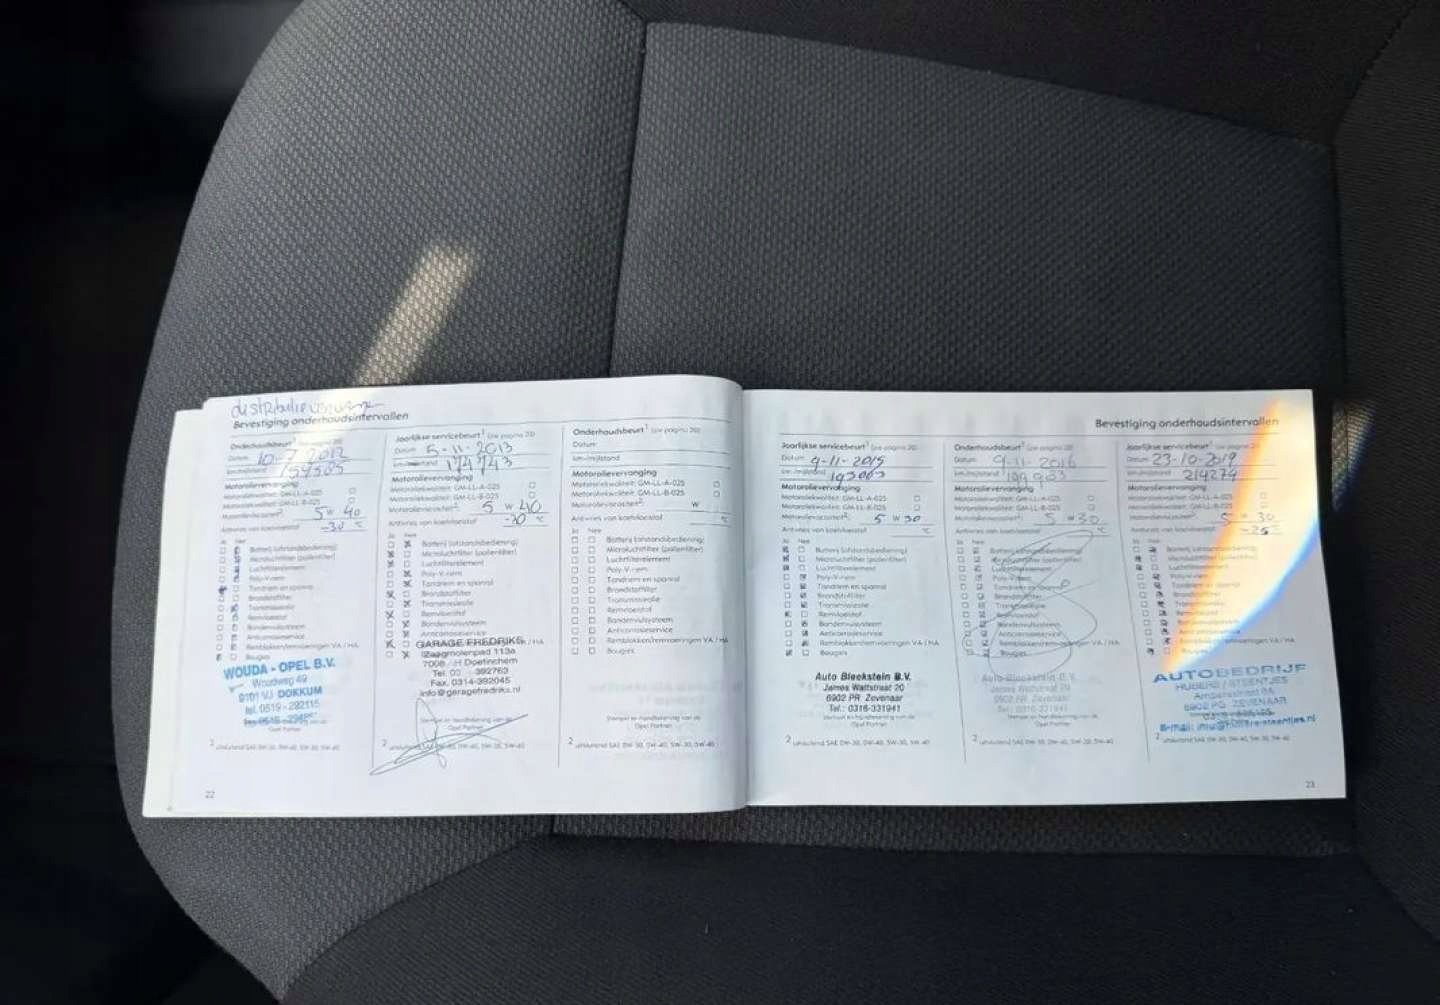 Bevestiging onderhoudsintervallen
Onderhoudsbeurt¹ (zie pagina 20)
Datum 10-7-2012
km-/mijlstand 159503
Motorolievervanging
Motoroliekwaliteit: GM-LL-A-025
Motoroliekwaliteit: GM-LL-B-025
Motorolieviscositeit²: 5 W 40
Antivries van koelvloeistof -30 °C
Ja Nee
Batterij (afstandsbediening)
Microluchtfilter (pollenfilter)
Luchtfilterelement
Poly-V-riem
Tandriem en spanrol
Brandstoffilter
Transmissieolie
Remvloeistof
Bandenvulsysteem
Anticorrosieservice
Remblokken/remvoeringen VA / HA
Bougies
WOUDA - OPEL B.V.
Woudweg 49
9101 VJ DOKKUM
tel. 0519 - 292115
Opel Partner
² uitsluitend SAE 0W-30, 0W-40, 5W-30, 5W-40
22
Jaarlijkse servicebeurt¹ (zie pagina 20)
Datum 5-11-2013
km-/mijlstand 174743
Motorolievervanging
Motoroliekwaliteit: GM-LL-A-025
Motoroliekwaliteit: GM-LL-B-025
Motorolieviscositeit²: 5 W 40
Antivries van koelvloeistof °C
Ja Nee
Batterij (afstandsbediening)
Microluchtfilter (pollenfilter)
Luchtfilterelement
Poly-V-riem
Tandriem en spanrol
Brandstoffilter
Transmissieolie
Remvloeistof
Bandenvulsysteem
Anticorrosieservice
GARAGE FREDRIKS
Zaagmolenpad 113a
Doetinchem
Fax. 0314-392045
info@garagefredriks.nl
Stempel en handtekening van de
Opel Partner
² uitsluitend SAE 0W-30, 0W-40, 5W-30, 5W-40
Onderhoudsbeurt¹ (zie pagina 20)
Datum
km-/mijlstand
Motorolievervanging
Motoroliekwaliteit: GM-LL-A-025
Motoroliekwaliteit: GM-LL-B-025
Motorolieviscositeit²: W
Antivries van koelvloeistof °C
Ja Nee
Batterij (afstandsbediening)
Microluchtfilter (pollenfilter)
Luchtfilterelement
Poly-V-riem
Tandriem en spanrol
Brandstoffilter
Transmissieolie
Remvloeistof
Bandenvulsysteem
Anticorrosieservice
Remblokken/remvoeringen VA / HA
Bougies
Stempel en handtekening van de
Opel Partner
² uitsluitend SAE 0W-30, 0W-40, 5W-30, 5W-40
Bevestiging onderhoudsintervallen
Jaarlijkse servicebeurt¹ (zie pagina 20)
Datum 9-11-2015
km-/mijlstand
Motorolievervanging
Motoroliekwaliteit: GM-LL-A-025
Motoroliekwaliteit: GM-LL-B-025
Motorolieviscositeit²: 5 W 30
Antivries van koelvloeistof °C
Ja Nee
Batterij (afstandsbediening)
Microluchtfilter (pollenfilter)
Luchtfilterelement
Poly-V-riem
Tandriem en spanrol
Brandstoffilter
Transmissieolie
Remvloeistof
Bandenvulsysteem
Anticorrosieservice
Remblokken/remvoeringen VA / HA
Bougies
Auto Bleekstein B.V.
James Wattstraat 20
6902 PR Zevenaar
Tel.: 0316-331941
Stempel en handtekening van de
Opel Partner
² uitsluitend SAE 0W-30, 0W-40, 5W-30, 5W-40
Onderhoudsbeurt¹ (zie pagina 20)
Datum 9-11-2016
km-/mijlstand 199983
Motorolievervanging
Motoroliekwaliteit: GM-LL-A-025
Motoroliekwaliteit: GM-LL-B-025
Motorolieviscositeit²: 5 W 30
Antivries van koelvloeistof °C
Ja Nee
Batterij (afstandsbediening)
Microluchtfilter (pollenfilter)
Luchtfilterelement
Poly-V-riem
Tandriem en spanrol
Brandstoffilter
Transmissieolie
Remvloeistof
Bandenvulsysteem
Anticorrosieservice
Remblokken/remvoeringen VA / HA
Bougies
Auto Bleekstein B.V.
James Wattstraat 20
6902 PR Zevenaar
Tel.: 0316-331941
Stempel en handtekening van de
Opel Partner
² uitsluitend SAE 0W-30, 0W-40, 5W-30, 5W-40
Jaarlijkse servicebeurt¹ (zie pagina 20)
Datum 23-10-2019
km-/mijlstand 214274
Motorolievervanging
Motoroliekwaliteit: GM-LL-A-025
Motoroliekwaliteit: GM-LL-B-025
Motorolieviscositeit²: 5 W 30
Antivries van koelvloeistof -25 °C
Ja Nee
Batterij (afstandsbediening)
Microluchtfilter (pollenfilter)
Luchtfilterelement
Poly-V-riem
Tandriem en spanrol
Brandstoffilter
Transmissieolie
Remvloeistof
Bandenvulsysteem
Anticorrosieservice
Remblokken/remvoeringen VA / HA
Bougies
AUTOBEDRIJF
6902 PG ZEVENAAR
² uitsluitend SAE 0W-30, 0W-40, 5W-30, 5W-40
23